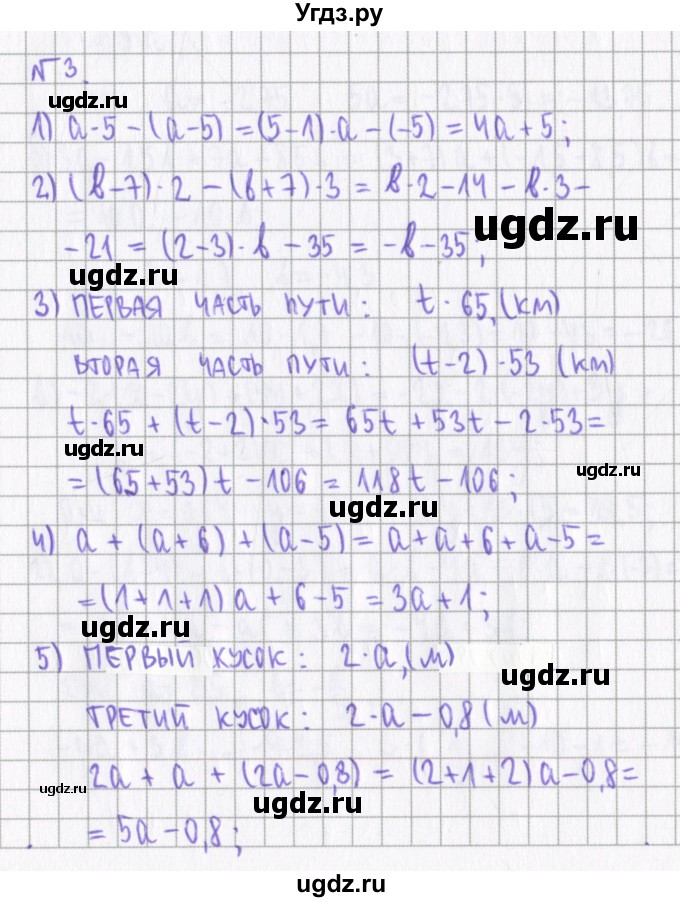 Угдз.ру
№3.
ugdz.ru
1) a·5 - (a-5) = (5-1)·a - (-5) = 4a + 5;
2) (в-7)·2 - (в+7)·3 = в·2-14 - в·3 -
ugdz.ru
ugdz.ru
-21 = (2-3)·в - 35 = -в-35;
ugdz.ru
3) ПЕРВАЯ ЧАСТЬ ПУТИ: t·65, (км)
ВТОРАЯ ЧАСТЬ ПУТИ: (t-2)·53 (км)
t·65 + (t-2)·53 = 65t + 53t - 2·53 =
ugdz.ru
ugdz.ru
= (65+53)t - 106 = 118t - 106;
ugdz.ru
ugdz.ru
4) a + (a+6) + (a-5) = a+a+6+a-5 =
= (1+1+1)a + 6-5 = 3a+1;
ugdz.ru
5) ПЕРВЫЙ КУСОК: 2·a, (м)
ugdz.ru
ТРЕТИЙ КУСОК: 2·a - 0,8 (м)
2a + a + (2a-0,8) = (2+1+2)a-0,8 =
ugdz.ru
ugdz.ru
= 5a-0,8;
ugdz.ru